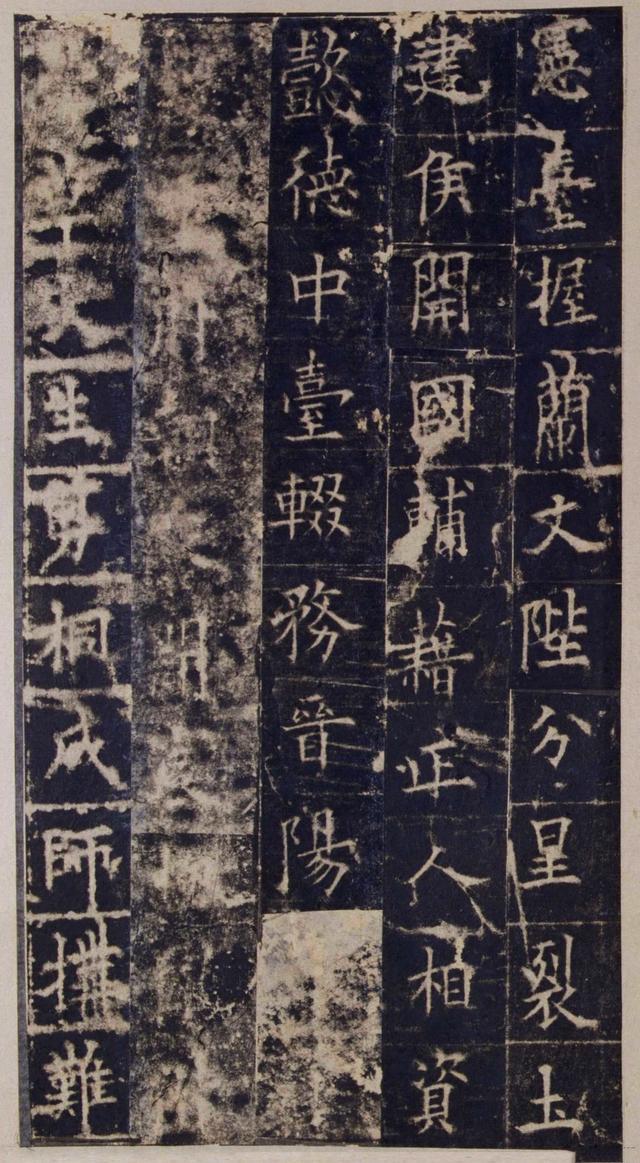 憲臺握蘭文陛分星裂土
建侯開國輔藉正人相資
懿德中臺輟務晉陽
開
天生剪桐成師搆難